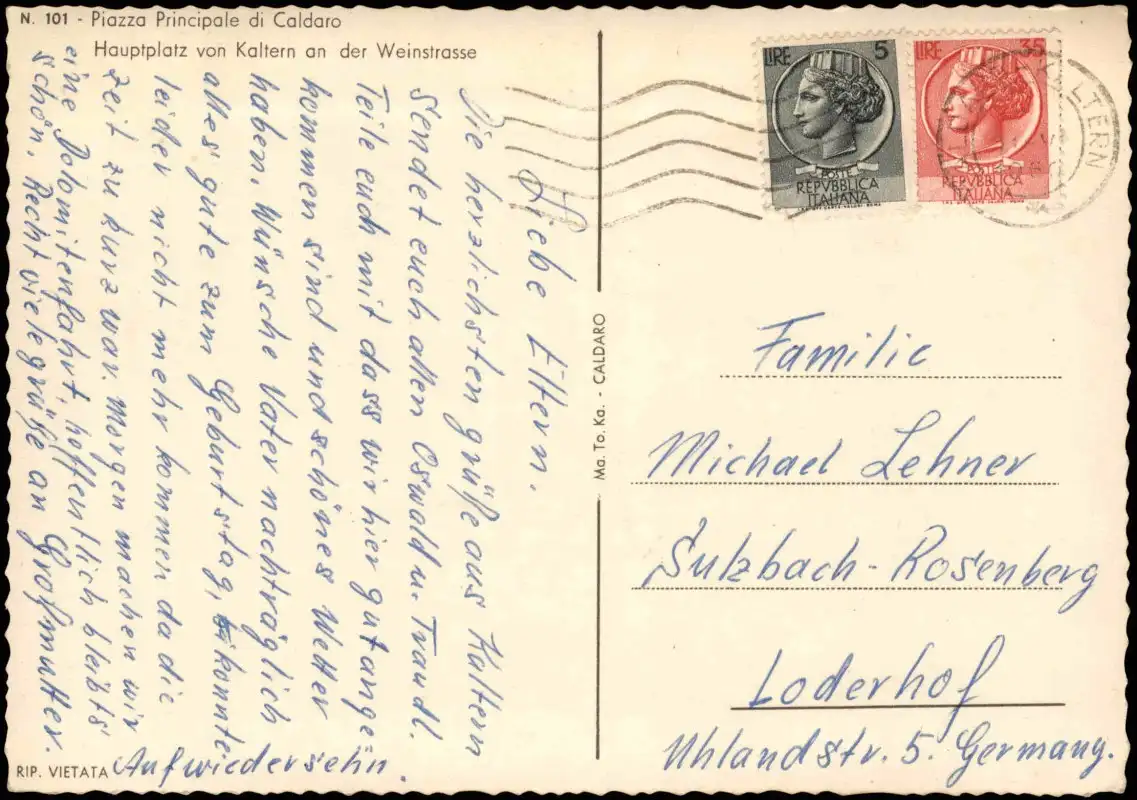 N. 101 - Piazza Principale di Caldaro
Hauptplatz von Kaltern an der Weinstrasse
Liebe Eltern.
Die herzlichsten grüße aus Kaltern
sendet euch allen Oswald u. Traudl.
Teile euch mit dass wir hier gut ange
kommen sind und schönes Wetter
haben. Wünsche Vater nachträglich
alles gute zum Geburtstag, konnte
leider nicht mehr kommen da die
Zeit zu kurz war. Morgen machen wir
eine Dolomitenfahrt, hoffentlich bleibts
schön. Recht viele grüße an Großmutter.
Aufwiedersehn.
RIP. VIETATA
Ma. To. Ka. - CALDARO
LIRE 5
POSTE
REPVBBLICA
ITALIANA
LIRE 35
REPVBBLICA
ITALIANA
KALTERN
Familie
Michael Lehner
Sulzbach-Rosenberg
Loderhof
Uhlandstr. 5. Germany.